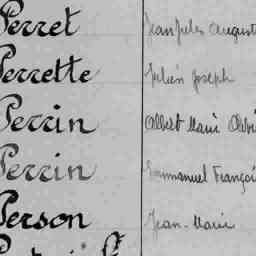 Perret Jean Jules August
Perrette Julien Joseph
Perrin Albert Marie
Perrin Emmanuel Françoi
Person Jean-Marie